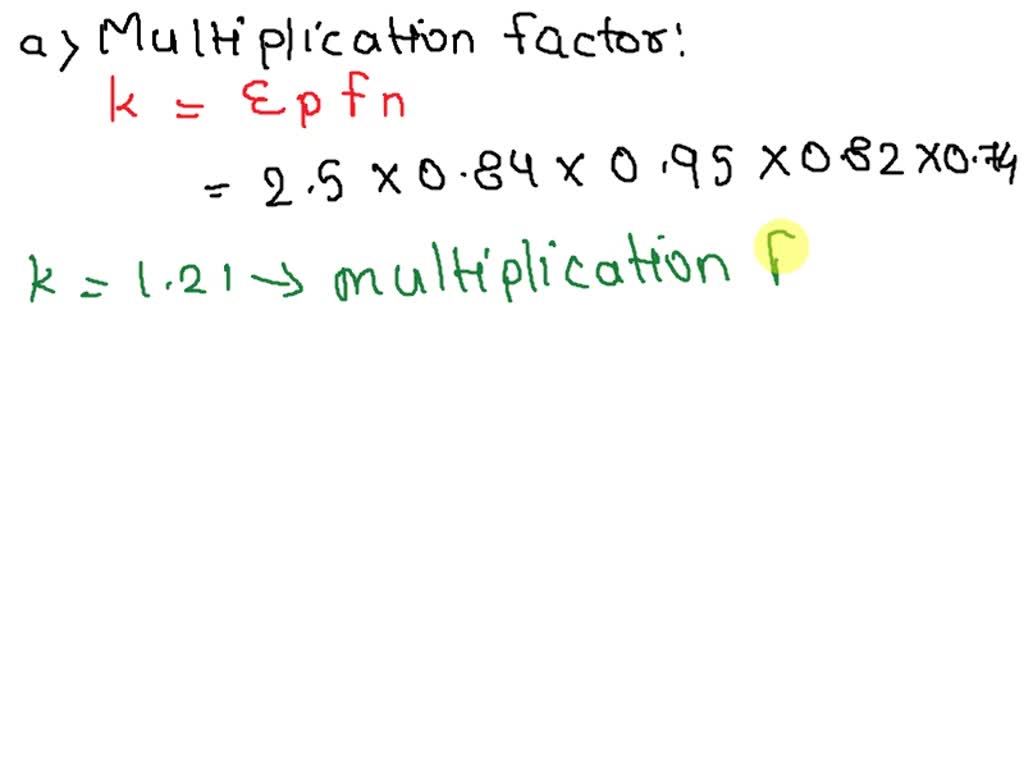 a) Multiplication factor:
k = Ɛ p f n
= 2.5 × 0.84 × 0.95 × 0.82 × 0.74
k = 1.21 → multiplication F